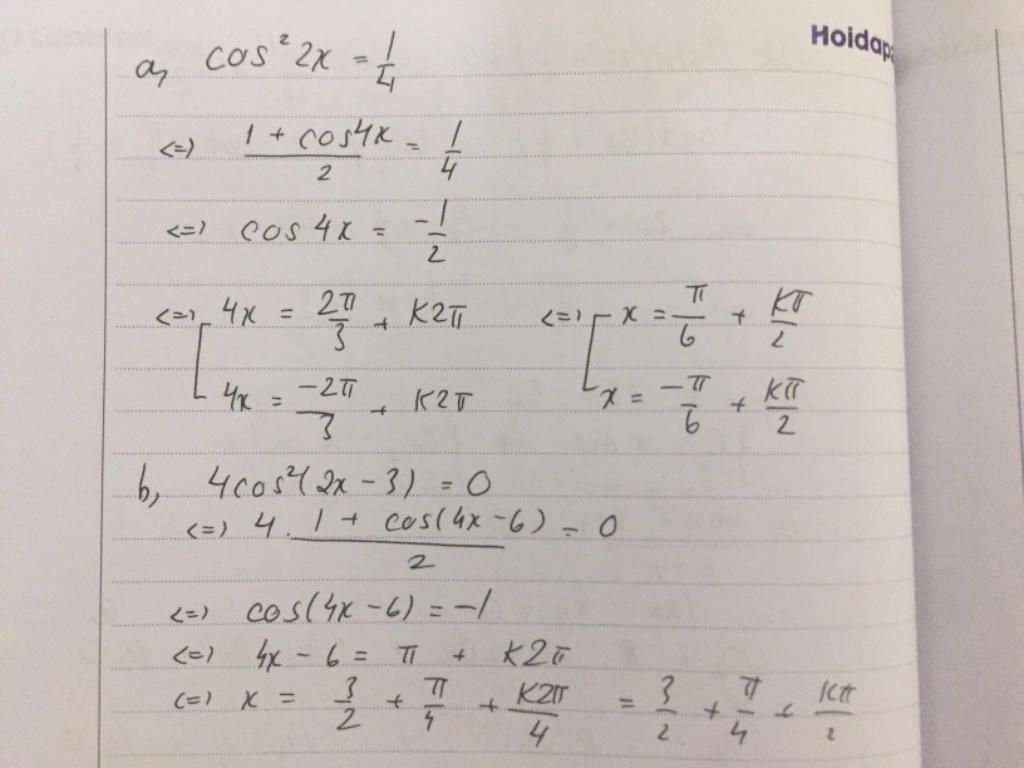 Hoidapa
a, cos² 2x = 1/4
<=> (1 + cos4x)/2 = 1/4
<=> cos 4x = -1/2
<=> [ 4x = 2π/3 + K2π <=> [ x = π/6 + Kπ/2
4x = -2π/3 + K2π x = -π/6 + Kπ/2
b, 4cos²(2x - 3) = 0
<=> 4. (1 + cos(4x - 6))/2 = 0
<=> cos(4x - 6) = -1
<=> 4x - 6 = π + K2π
<=> x = 3/2 + π/4 + K2π/4 = 3/2 + π/4 + Kπ/2